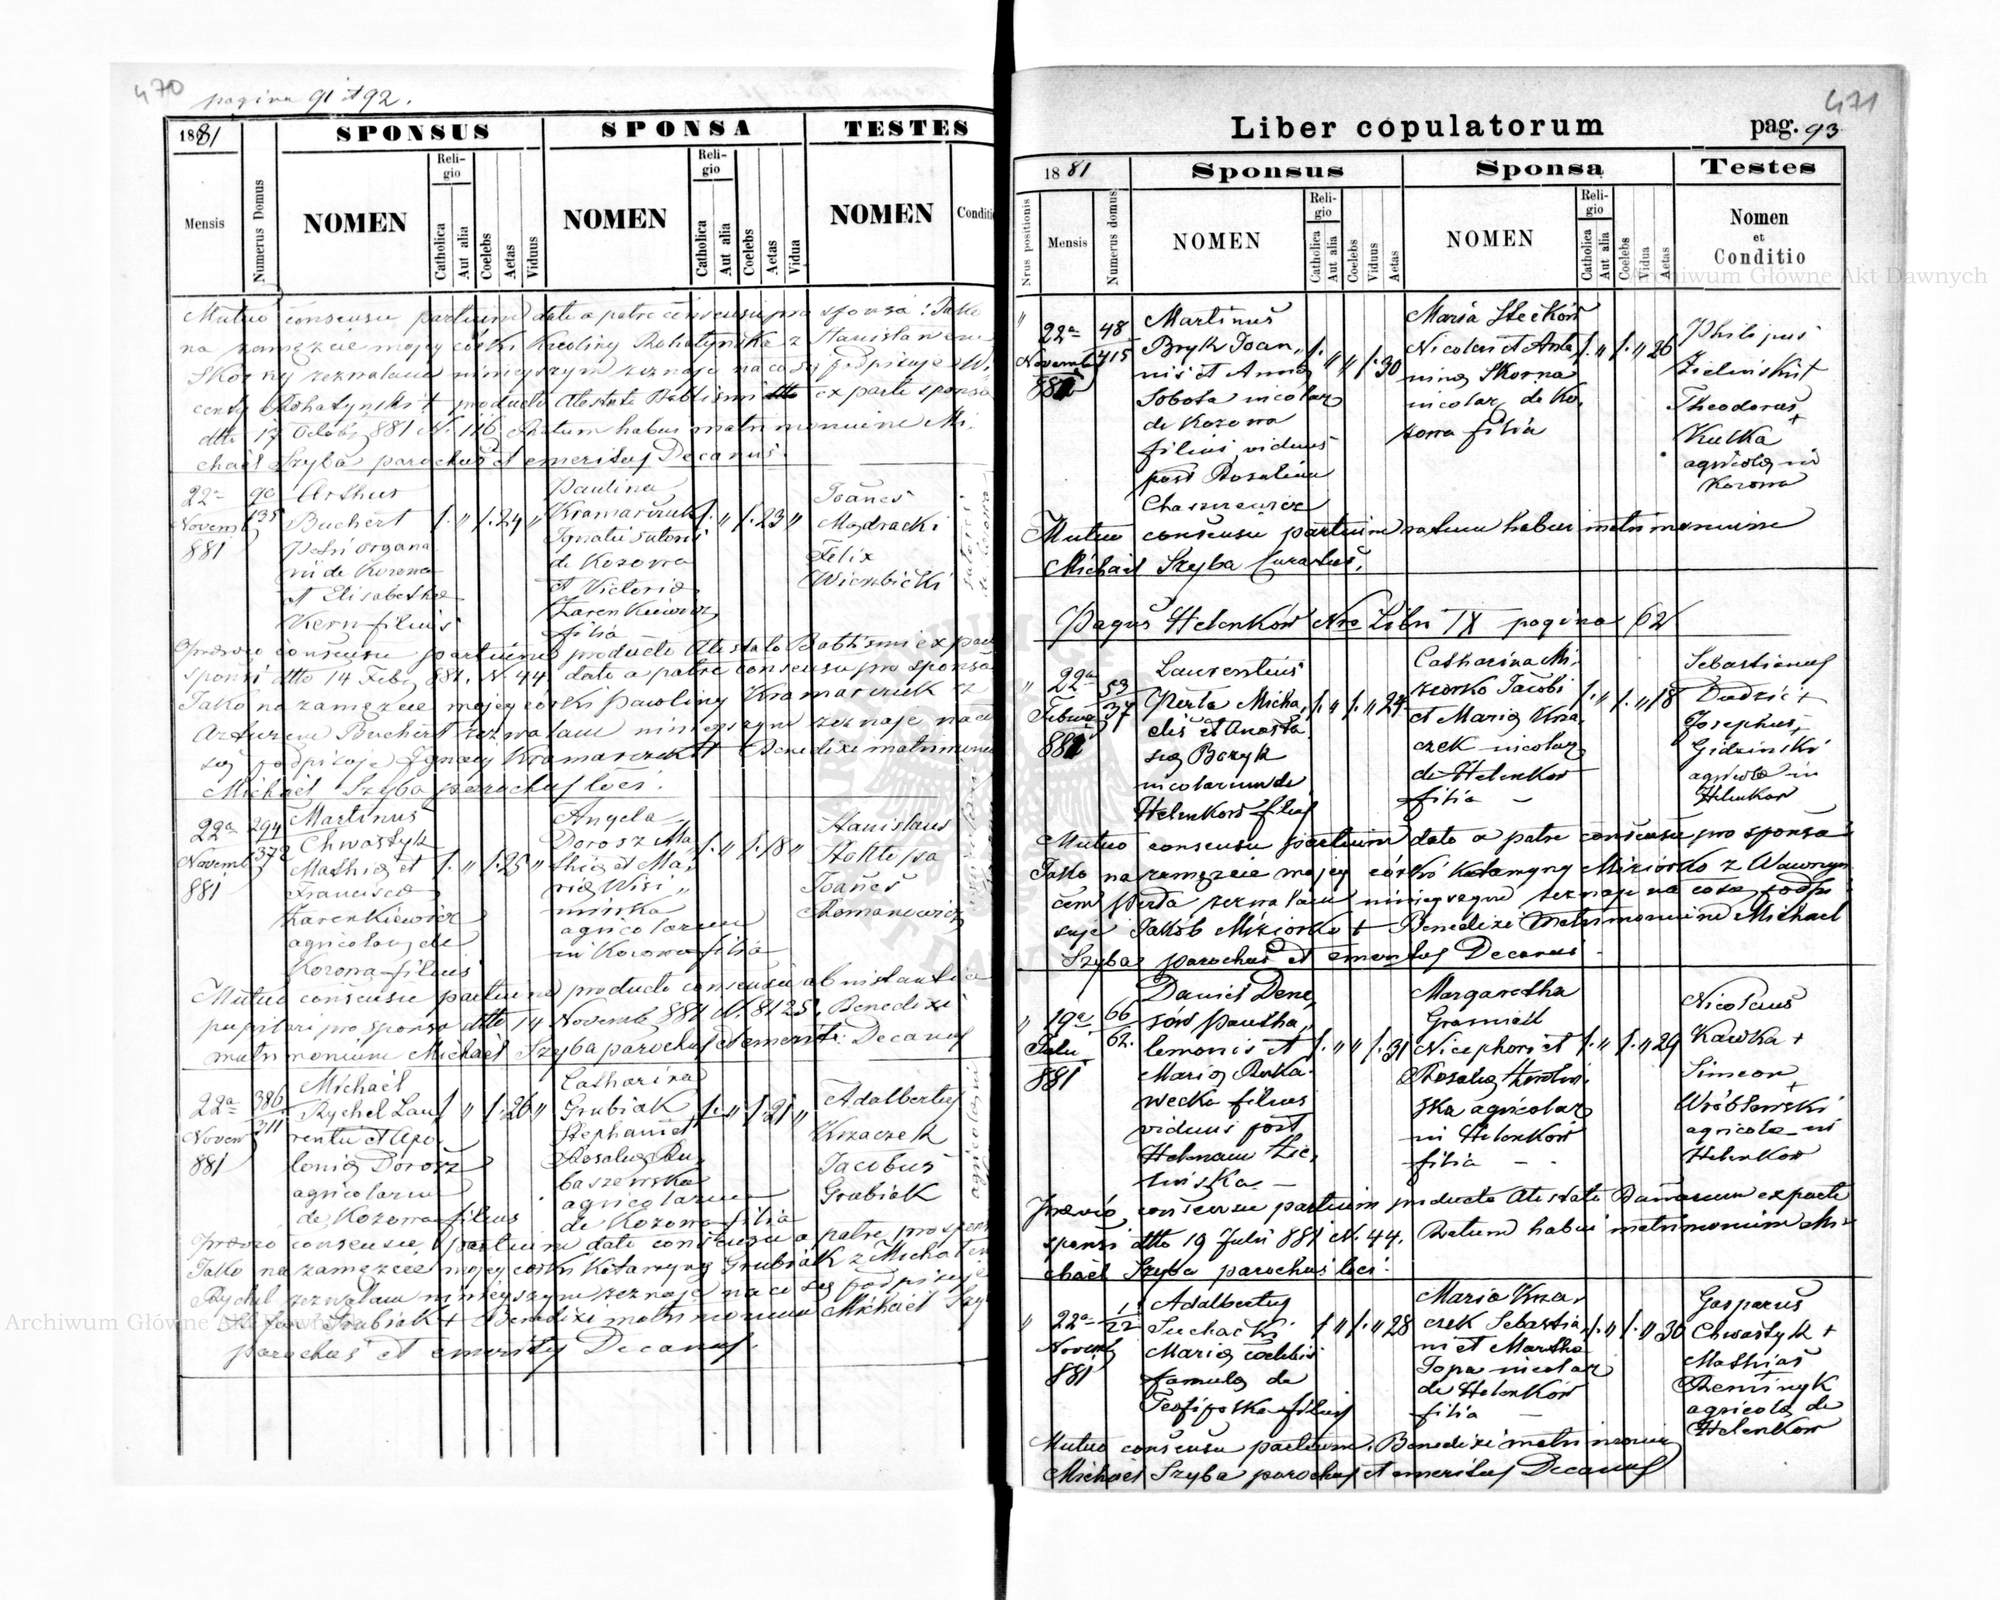 470
pagina 91 et 92.
1881
SPONSUS
SPONSA
TESTES
Mensis
Numerus Domus
NOMEN
Religio
Catholica
Aut alia
Coelebs
Aetas
Viduus
NOMEN
Religio
Catholica
Aut alia
Coelebs
Aetas
Vidua
NOMEN
Conditi
Mutuo consensu partium dato a patre consensu pro sponsa: Jako
na zamęzcie mojej córki Karoliny Rohatyńska z Stanisławem
zezwalam niniejszym zeznaję na co się podpisuję Wi
centy Rohatyński + producto Atestato Babtismi ex parte sponsa
dtto 17 Octob 881 N. 116 Ratum habui matrimonium Mi
chaël Szyba parochus et emeritus Decanus.
22a
Novemb
881
90
135
Arthur
Buchert
Petri organa
rii de Kozowa
et Elisabetha
Kern filius
24
Paulina
Kramarczuk
Ignatii sutoris
de Kozowa
et Victoria
Zarenkiewicz
filia
23
Joañes
Mądracki
Felix
Wierzbicki
Praevio consensu partium producto Atestato Babtismi ex parte
sponsi dtto 14 Feb 881. N. 44 dato a patre consensu pro sponsa
Jako na zamęzcie mojej córki Pauliny Kramarczuk z
Arturem Buchert zezwalam niniejszym zeznaję na co
się podpisuję Ignacy Kramarczuk + Benedixi matrimonium
Michaël Szyba parochus loci.
22a
Novemb
881
294
372
Martinus
Chwastyk
Mathia et
Francisca
Zarenkiewicz
agricolarum de
Kozowa filius
25
Angela
Dorosz Ma
thia et Ma
ria Wisi
nińska
agricolarum
in Kozowa filia
18
Stanislaus
Stokłosa
Joañes
Romanowicz
Mutuo consensu partium producto consensu ab instantia
pupilari pro sponsa dtto 14 Novemb 881 N. 8125. Benedixi
matrimonium Michaël Szyba parochus et emerit. Decanus
22a
Novem
881
386
311
Michaël
Rychel Lau
rentii et Apo
lonia Dorosz
agricolarum
de Kozowa filius
26
Catharina
Grubiak
Stephani et
Rosalia Ru
baszewska
agricolarum
de Kozowa filia
21
Adalbertus
Krzaczek
Jacobus
Grubiak
Praevio consensu partium dato consensu a patre pro sponsa
Jako na zamęzcie mojej córki Katarzyny Grubiak z Michałem
Rychel zezwalam niniejszym zeznaję na co się podpisuję
Stefan Grubiak + Benedixi matrimonium Michaël Szy
parochus et emeritus Decanus.
471
Liber copulatorum
pag. 93
1881
Sponsus
Sponsa
Testes
Nrus positionis
Mensis
Numerus domus
NOMEN
Religio
Catholica
Aut alia
Coelebs
Viduus
Aetas
NOMEN
Religio
Catholica
Aut alia
Coelebs
Vidua
Aetas
Nomen
et
Conditio
22a
Novemb
881
48
415
Martinus
Bryk Joan
nis et Anna
Sobota incolar
de Kozowa
filius viduus
post Rosaliam
30
Maria Steckow
Nicolai et Anto
nina Skorna
incolar de Ko
zowa filia
26
Philipus
Zieliński +
Theodorus +
Kulka
agricola in
Kozowa
Mutuo consensu partium ratum habui matrimonium
Michaël Szyba Curatus.
Pagus Helenków Nro Libri IX pagina 62
22a
Febru
881
53
37
Laurentius
Perta Micha
elis et Anasta
sia Boryk
incolarum de
Helenkow filius
24
Catharina Mi
ziorko Jacobi
et Maria Krza
czek incolar
de Helenkow
filia
18
Sebastianus
Dudzic +
Josephus +
Gidziński
agricola in
Helenkow
Mutuo consensu partium dato a patre consensu pro sponsa
Jako na zamęzcie mojej córki Katarzyny Miziorko z Wawrzyn
cem Perta zezwalam niniejszym zeznaję na co się podpi
suje Jakób Miziorko + Benedixi matrimonium Michaël
Szyba parochus et emeritus Decanus.
19a
Juli
881
66
62.
Daniel Dene
sów Pantha
lemonis et
Maria Ruka
wecka filius
viduus post
Helenam Zie
lińska
31
Margaretha
Nicephori et
Rosalia
ska agricolar
in Helenkow
filia
29
Nicolaus
Kawka +
Simeon +
Wróblewski
agricola in
Helenkow
Praevio consensu partium producto Atestato Bannorum ex parte
sponsi dtto 19 Julii 881 N. 44. Ratum habui matrimonium Mi
chaël Szyba parochus loci.
22a
Novemb
881
22
Adalbertus
Suchacki
Maria coelibis
famula de
Teofipolka filius
28
Maria Krza
czek Sebastia
ni et Martha
Sopa incolar
de Helenkow
filia
30
Gasparus
Chwastyk +
Mathias +
Reminyk
agricola de
Helenkow
Mutuo consensu partium. Benedixi matrimonium
Michaël Szyba parochus et emeritus Decanus
Archiwum Główne Akt Dawnych
Archiwum Główne Akt Dawnych